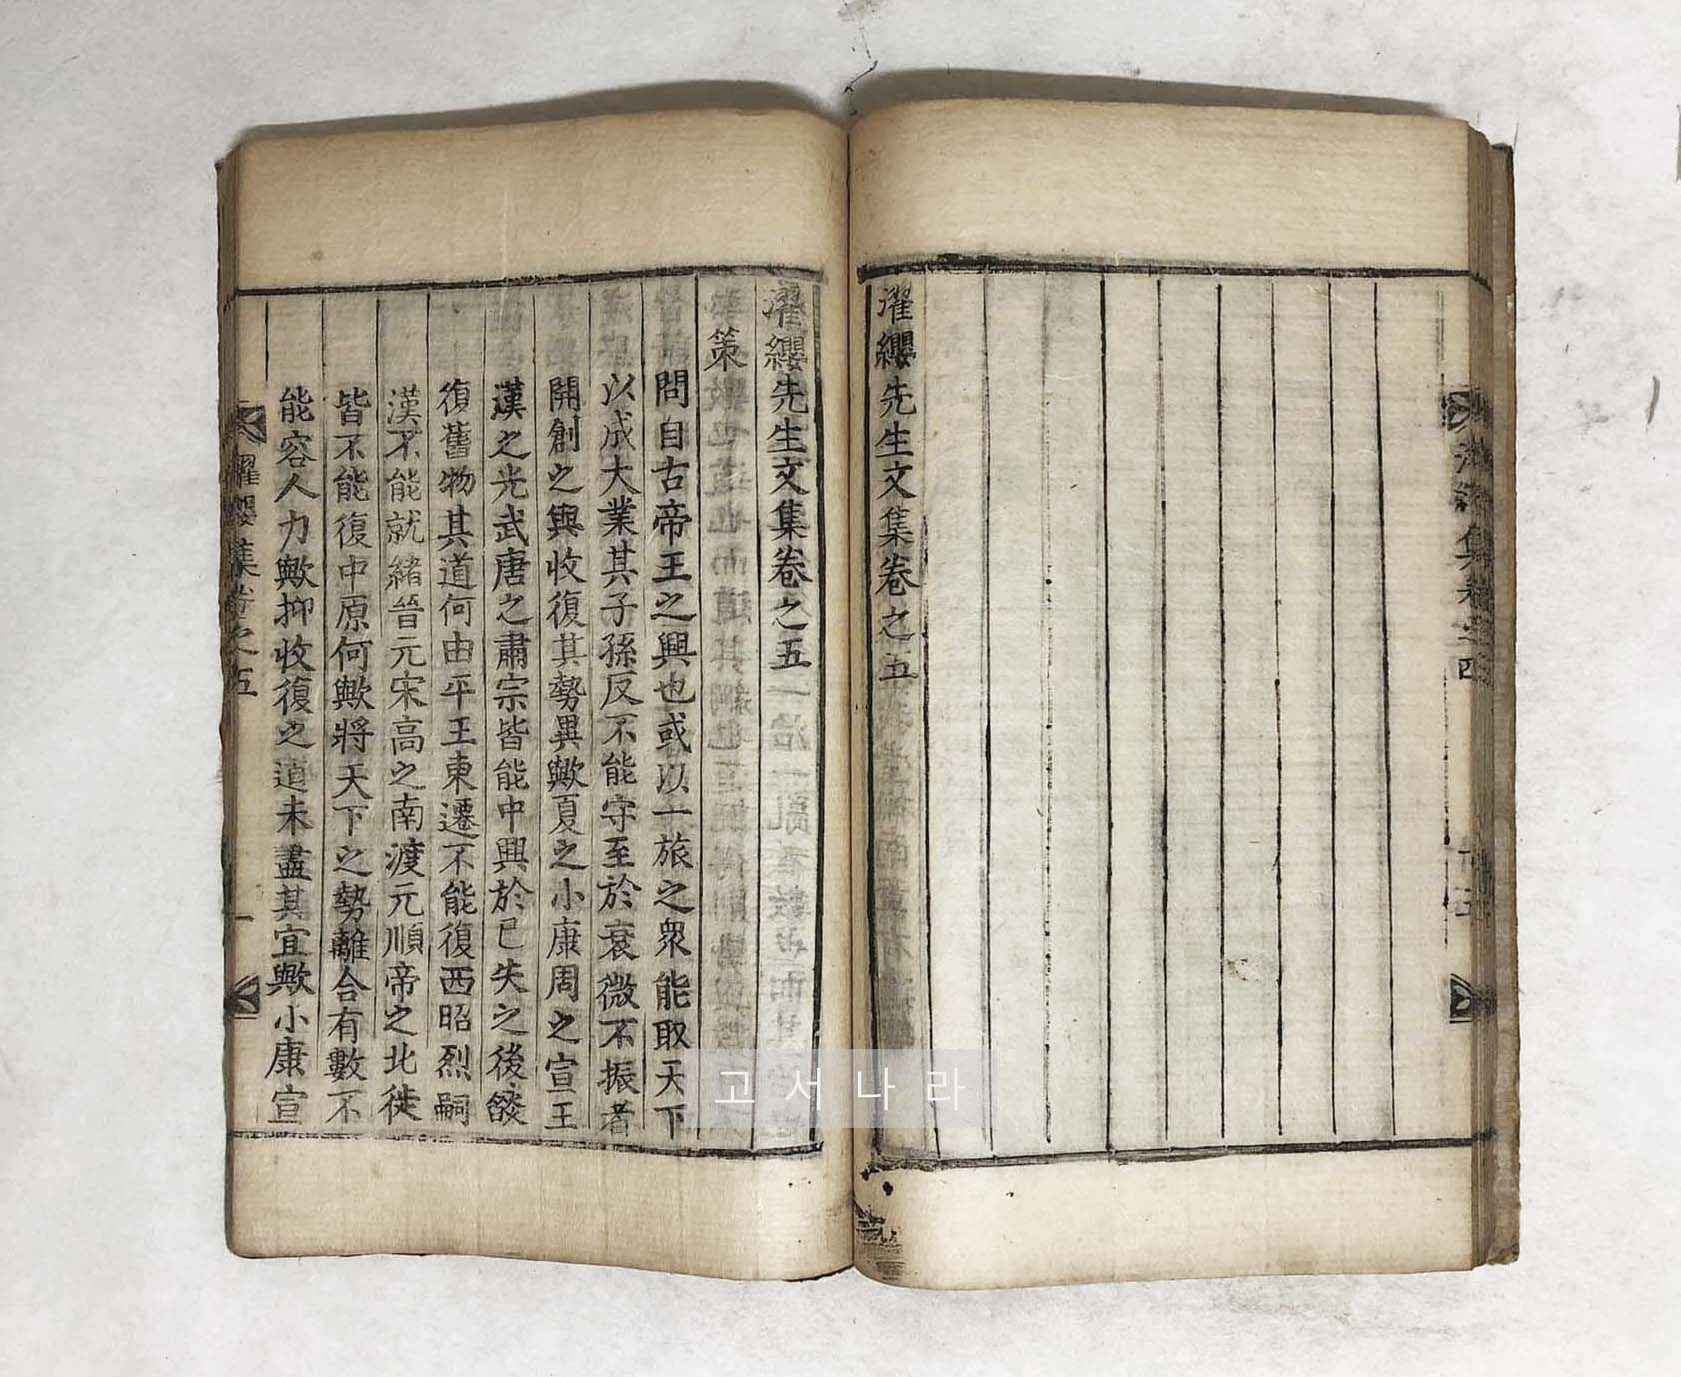 濯纓集卷之四
濯纓先生文集卷之五
濯纓先生文集卷之五
策
問自古帝王之興也或以一旅之衆能取天下
以成大業其子孫反不能守至於衰微不振者
開創之與收復其勢異歟夏之小康周之宣王
漢之光武唐之肅宗皆能中興於已失之後燄
復舊物其道何由平王東遷不能復西昭烈嗣
漢不能就緒晉元宋高之南渡元順帝之北徙
皆不能復中原何歟將天下之勢離合有數不
能容人力歟抑收復之道未盡其宜歟小康宣
濯纓集卷之五 一
고서나라